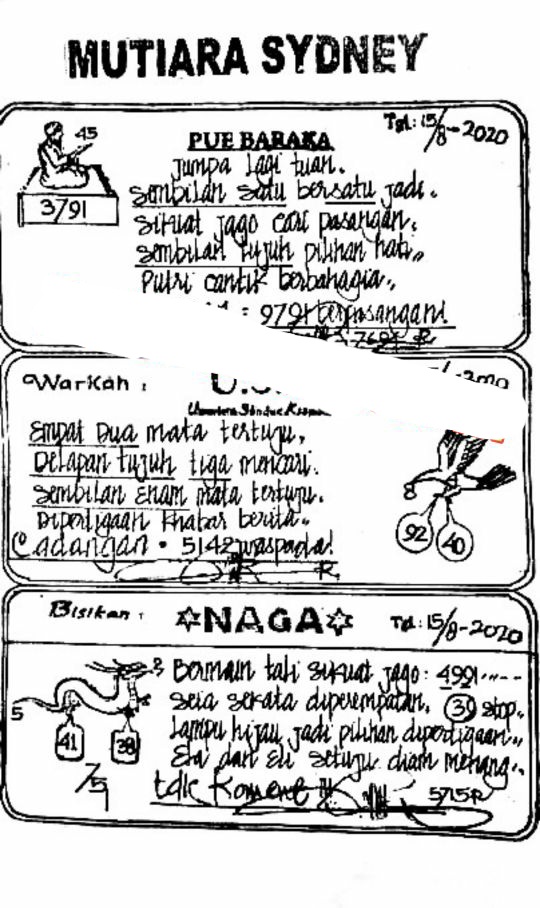 MUTIARA SYDNEY
45
3/91
PUE BARAKA
Tgl: 15/8-2020
Jumpa lagi tuan.
Sembilan satu bersatu jadi.
Sikuat jago cari pasangan.
Sembilan tujuh pilihan hati,,
Putri cantik berbahagia.,
: 9791 berpasangan!
Warkah :
Empat Dua mata tertuju,
Delapan tujuh tiga mencari.
Sembilan Enam mata tertuju.
Dipertigaan khabar berita..
Cadangan • 5142 waspada!
R.
92
40
Bisikan :
✡NAGA✡
Td: 15/8-2020
5
41
38
7/5
Bermain tali sikuat jago: 4991
seia sekata diperempatan, stop.
Lampu hijau jadi pilihan dipertigaan,,
Eta dan Eli setuju diam menang.
tdk Koment
5715R